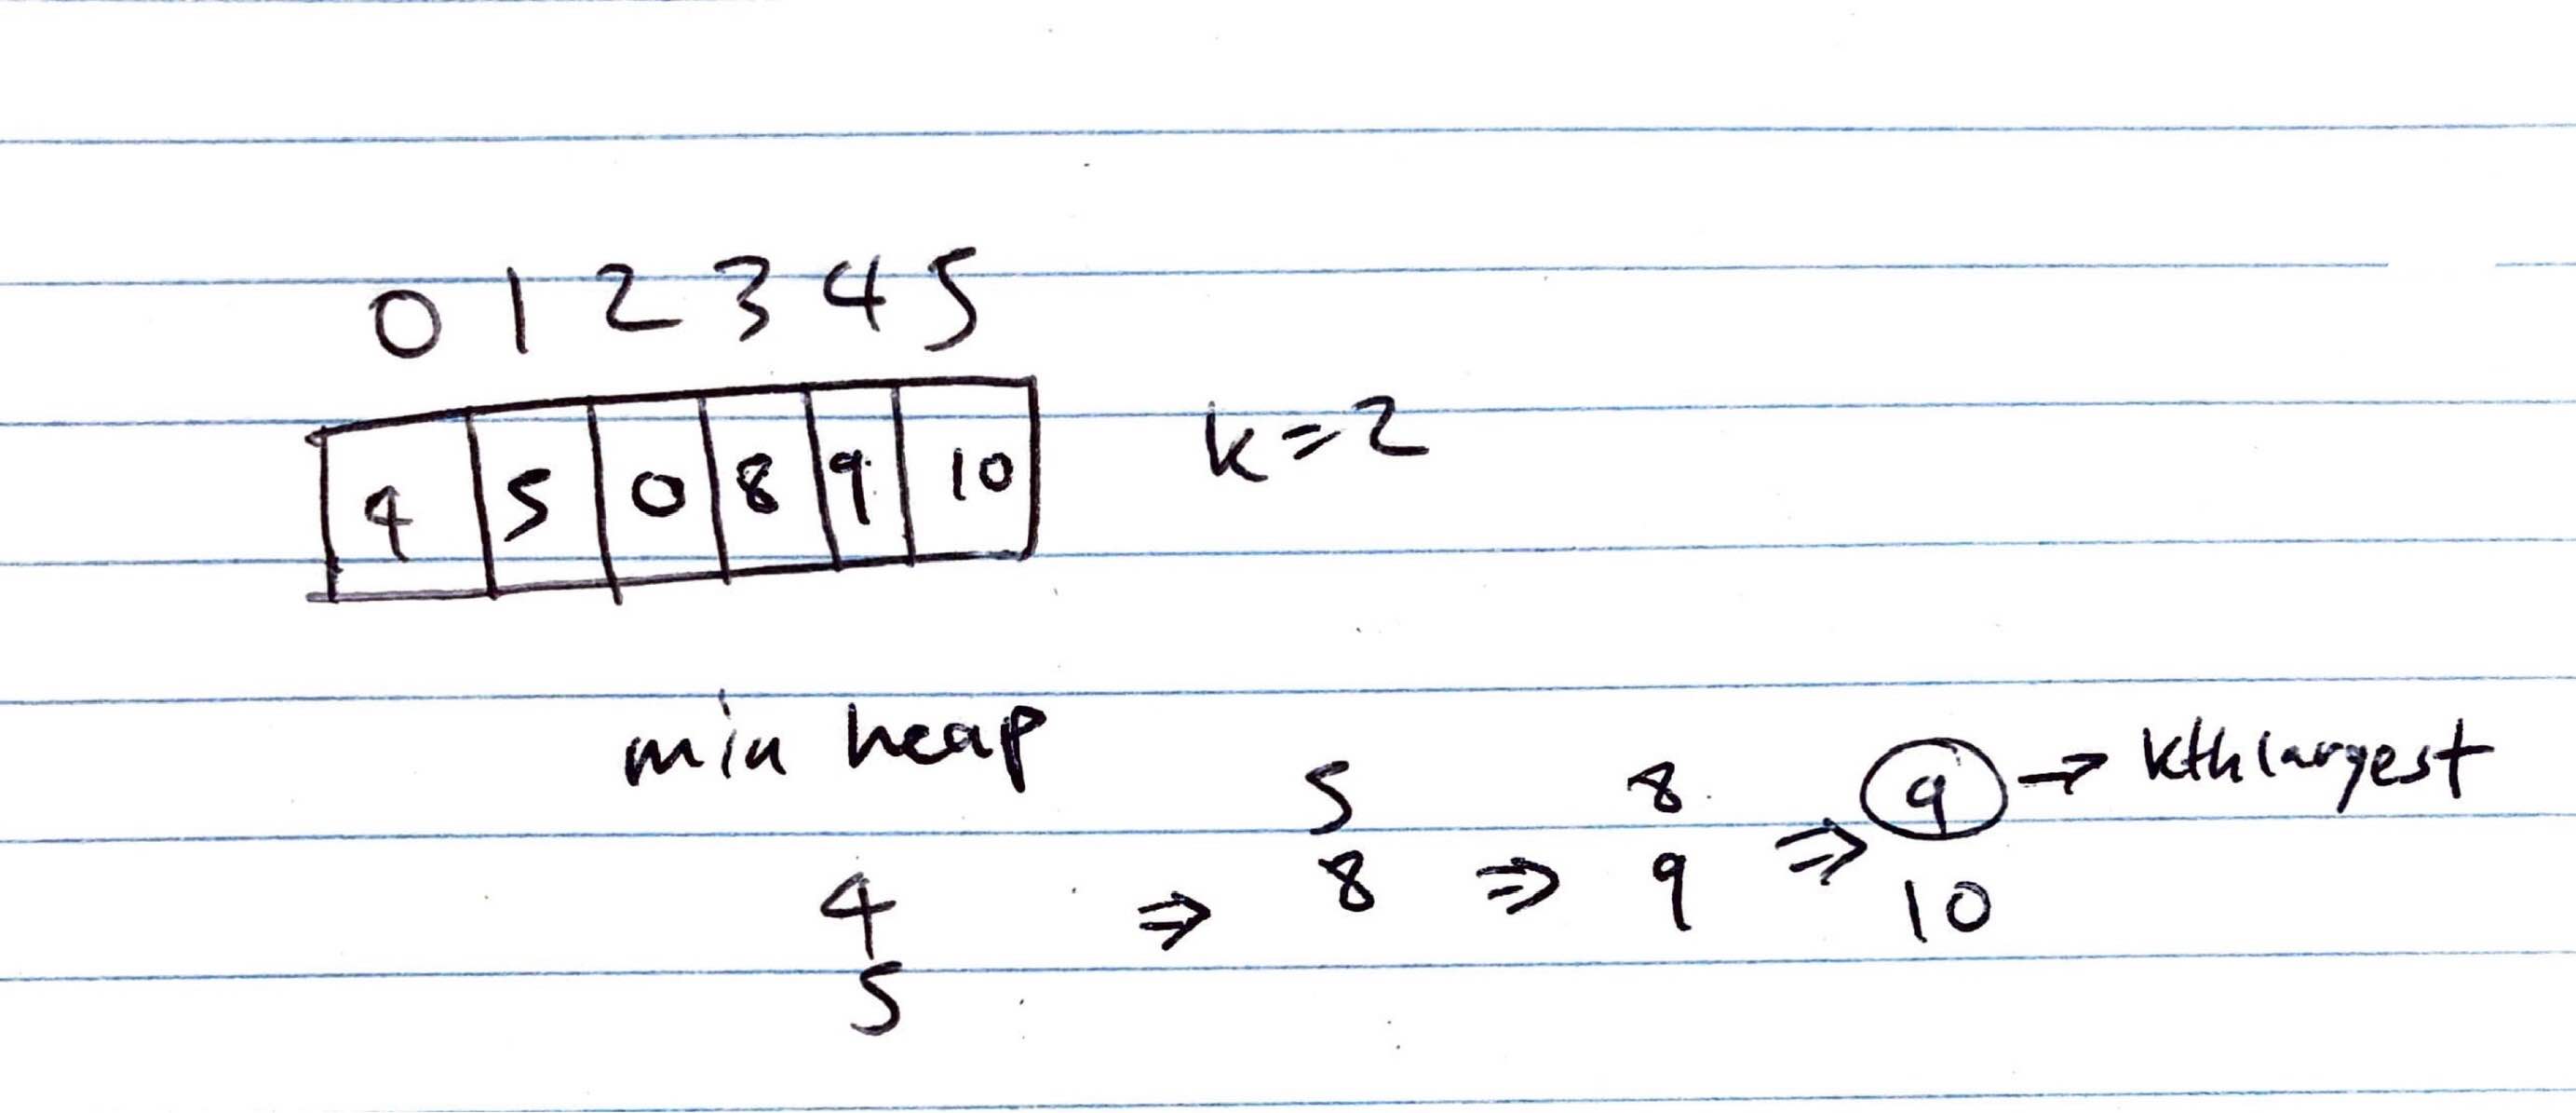 0 1 2 3 4 5
4 5 0 8 9 10
k=2
min heap
5 8 9 → kth largest
4 ⇒ 8 ⇒ 9 ⇒ 10
5